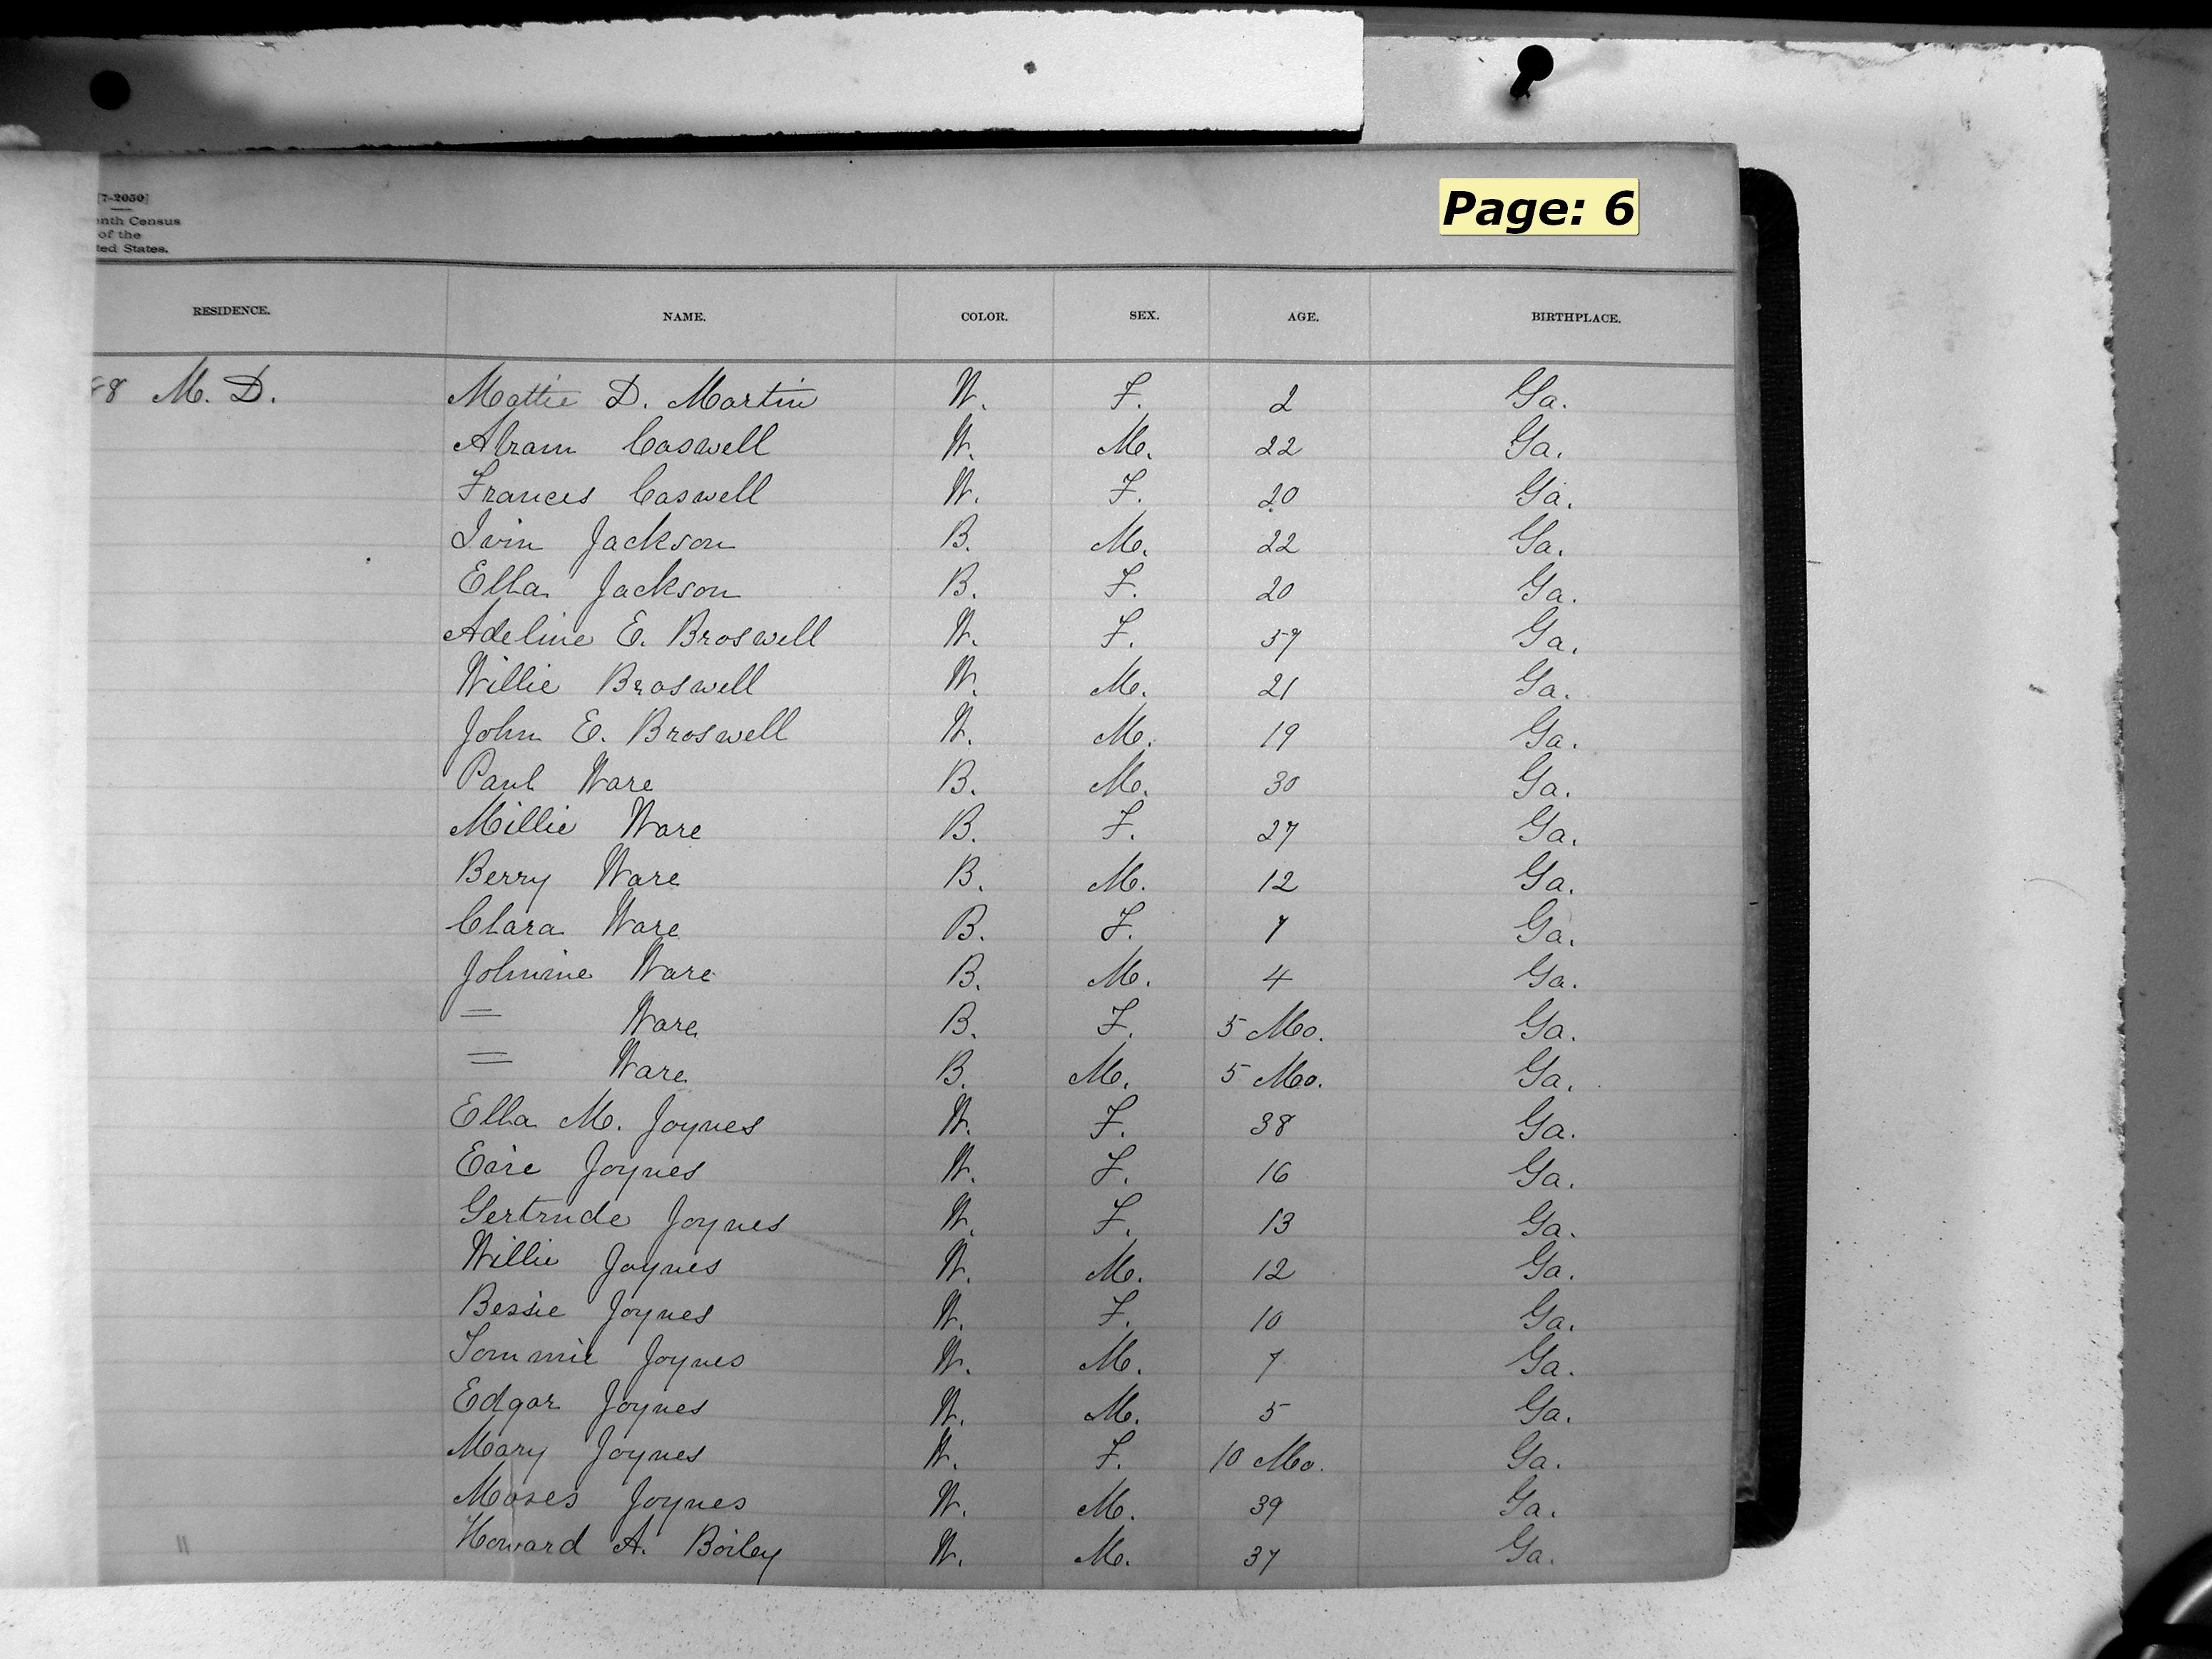 [7-2050]
enth Census
of the
ted States.
Page: 6
RESIDENCE. NAME. COLOR. SEX. AGE. BIRTHPLACE.
8 M. D. Mattie D. Martin W. F. 2 Ga.
Abram Caswell W. M. 22 Ga.
Frances Caswell W. F. 20 Ga.
Ivin Jackson B. M. 22 Ga.
Ella Jackson B. F. 20 Ga.
Adeline E. Broswell W. F. 57 Ga.
Willie Braswell W. M. 21 Ga.
John E. Broswell W. M. 19 Ga.
Paul Ware B. M. 30 Ga.
Millie Ware B. F. 27 Ga.
Berry Ware B. M. 12 Ga.
Clara Ware B. F. 7 Ga.
Johnnie Ware B. M. 4 Ga.
= Ware B. F. 5 Mo. Ga.
= Ware B. M. 5 Mo. Ga.
Ella M. Joynes W. F. 38 Ga.
Joynes W. F. 16 Ga.
Gertrude Joynes W. F. 13 Ga.
Willie Joynes W. M. 12 Ga.
Bessie Joynes W. F. 10 Ga.
Tommie Joynes W. M. 7 Ga.
Edgar Joynes W. M. 5 Ga.
Mary Joynes W. F. 10 Mo. Ga.
Moses Joynes W. M. 39 Ga.
" Howard A. Bailey W. M. 37 Ga.